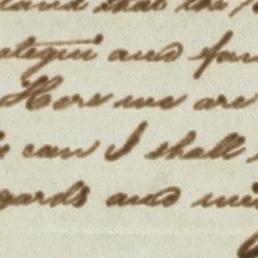 and that the
tequi and fam
Here we are
can I shall
gards and wi